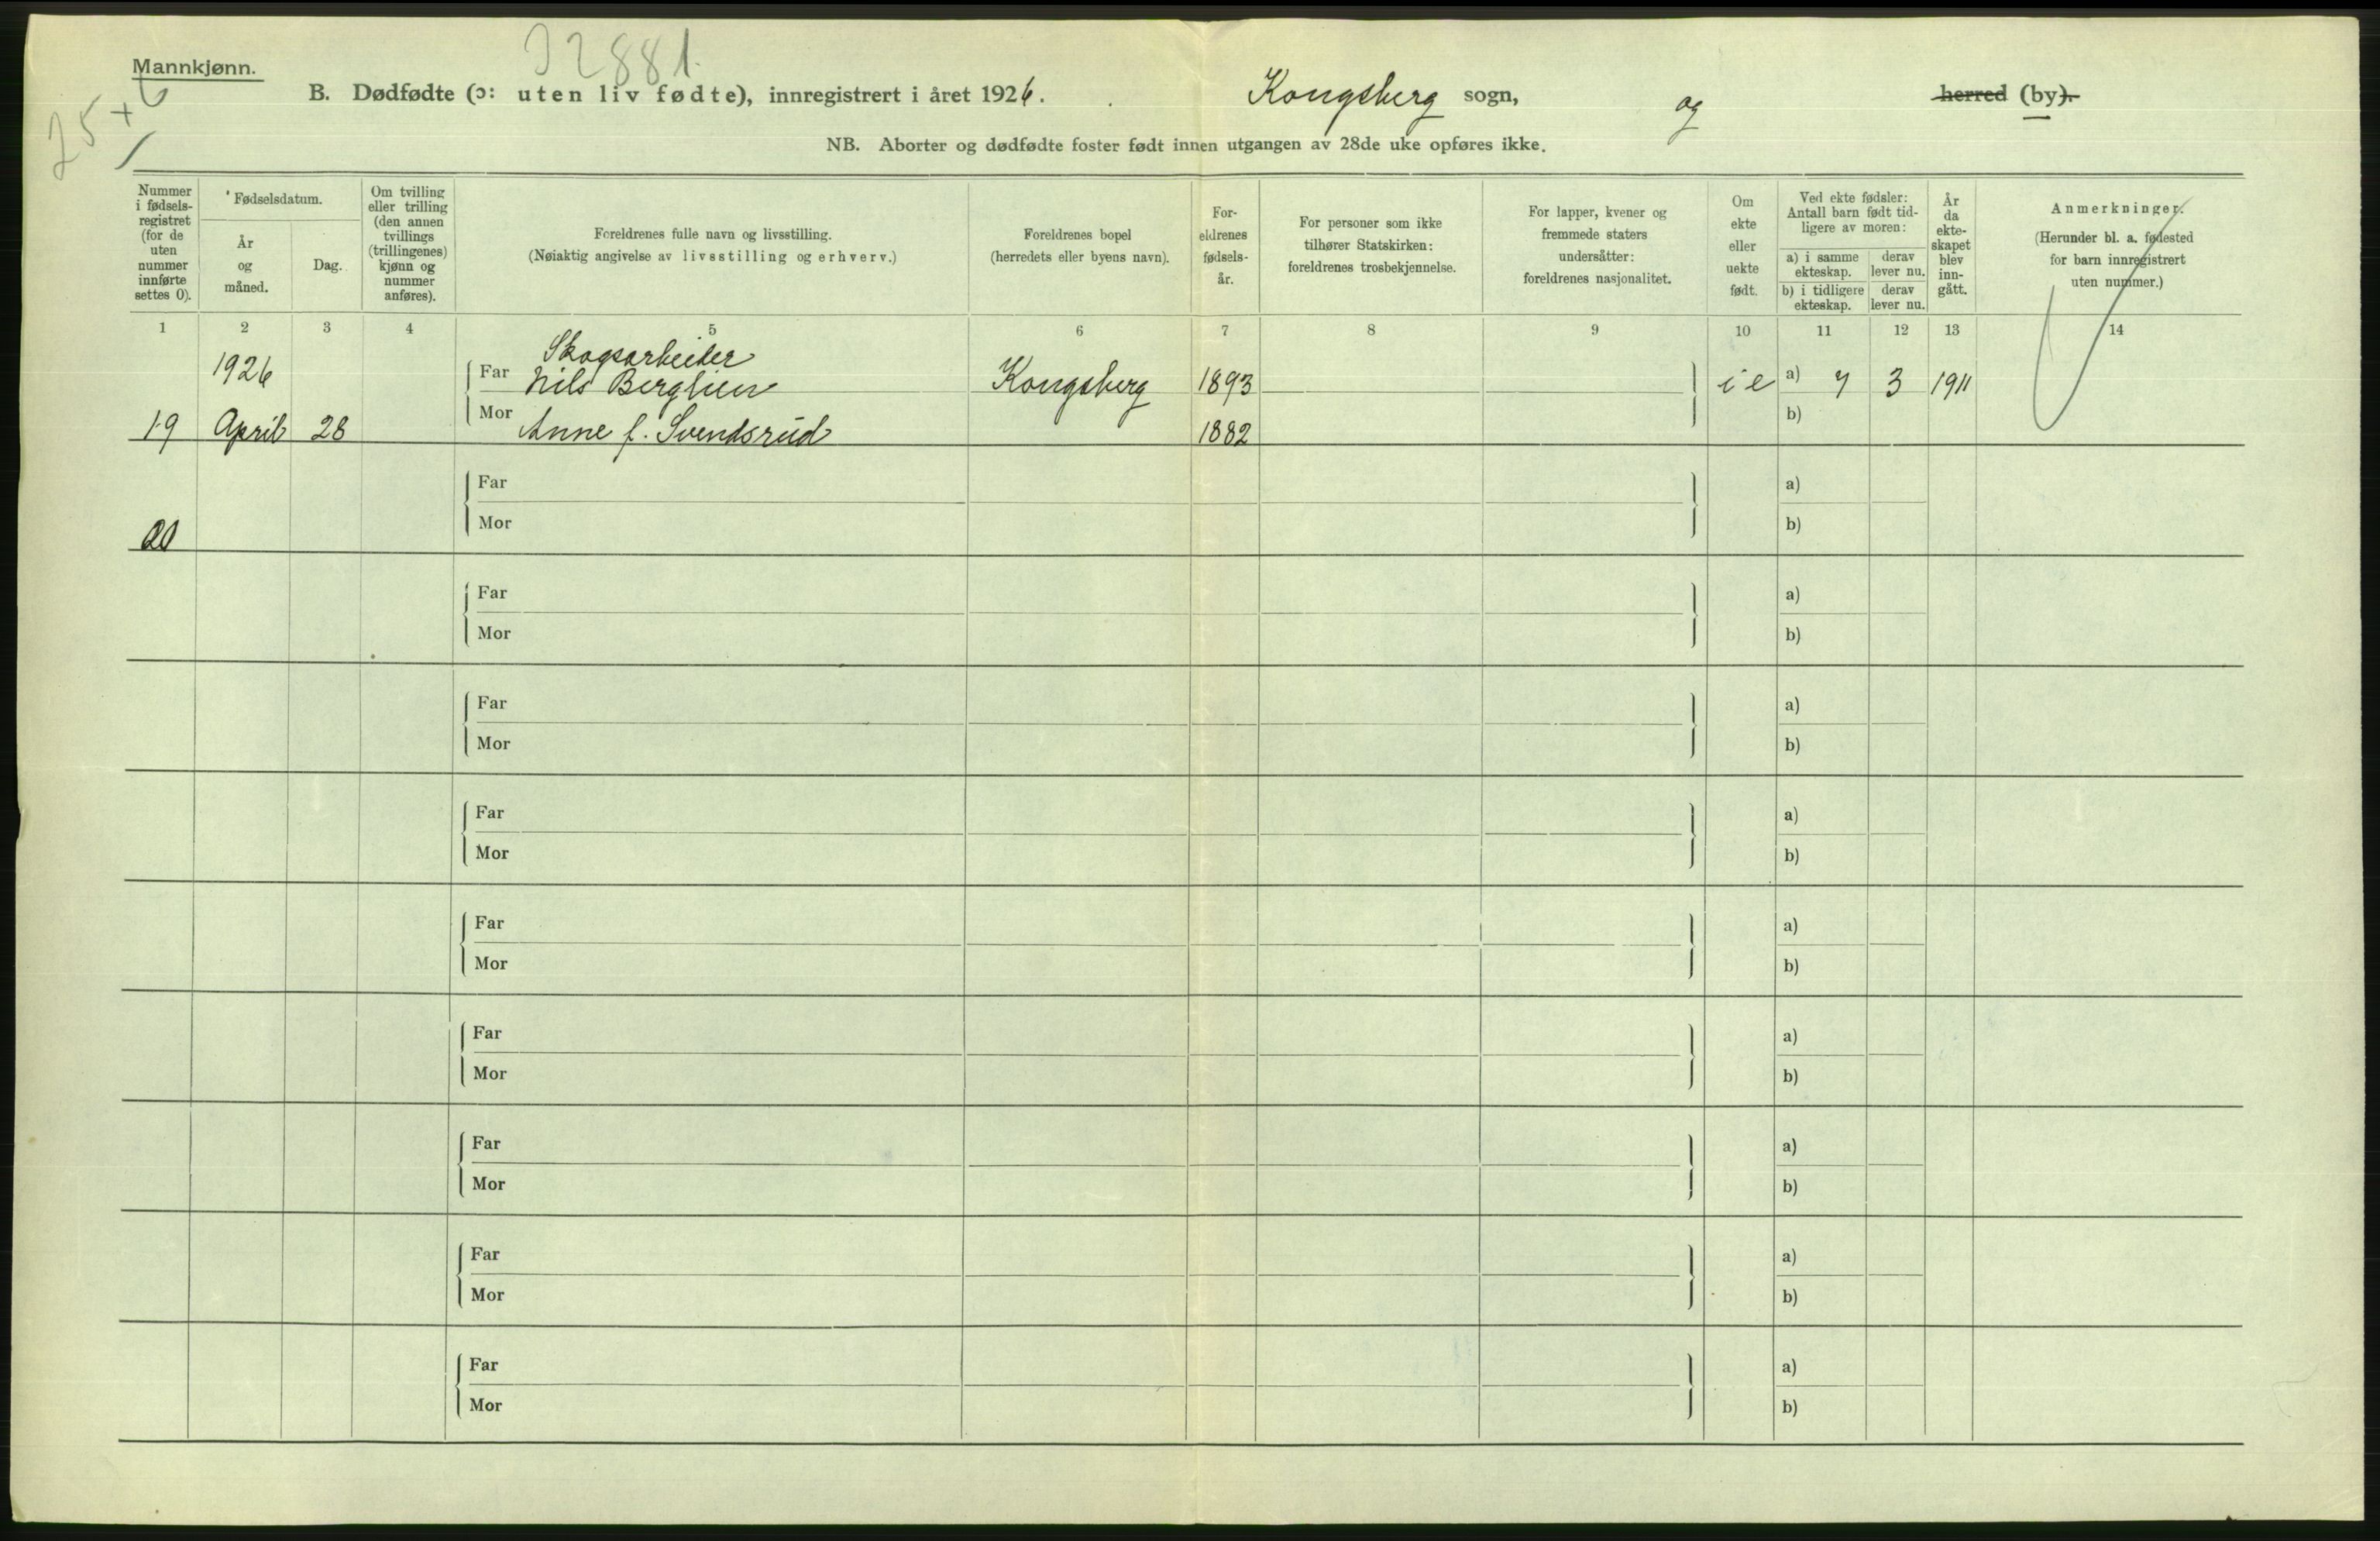 Mannkjønn.
32881.
25 + 6
B. Dødfødte (ɔ: uten liv fødte), innregistrert i året 1926. Kongsberg sogn, og herred (by).
NB. Aborter og dødfødte foster født innen utgangen av 28de uke opføres ikke.
Nummer i fødsels-registret (for de uten nummer innførte settes 0).
Fødselsdatum.
År og måned.
Dag.
Om tvilling eller trilling (den annen tvillings (trillingenes) kjønn og nummer anføres).
Foreldrenes fulle navn og livsstilling.
(Nøiaktig angivelse av livsstilling og erhverv.)
Foreldrenes bopel
(herredets eller byens navn).
For-eldrenes fødsels-år.
For personer som ikke tilhører Statskirken: foreldrenes trosbekjennelse.
For lapper, kvener og fremmede staters undersåtter: foreldrenes nasjonalitet.
Om ekte eller uekte født.
Ved ekte fødsler: Antall barn født tid-ligere av moren:
a) i samme ekteskap.
derav lever nu.
b) i tidligere ekteskap.
derav lever nu.
År da ekte-skapet blev inn-gått.
Anmerkninger.
(Herunder bl. a. fødested for barn innregistrert uten nummer.)
1 2 3 4 5 6 7 8 9 10 11 12 13 14
Skogsarbeider
1926 Far Nils Berglien Kongsberg 1893 i e a) 7 3 1911
19 April 28 Mor Anne f. Svendsrud 1882 b)
Far a)
Mor b)
20
Far a)
Mor b)
Far a)
Mor b)
Far a)
Mor b)
Far a)
Mor b)
Far a)
Mor b)
Far a)
Mor b)
Far a)
Mor b)
Far a)
Mor b)